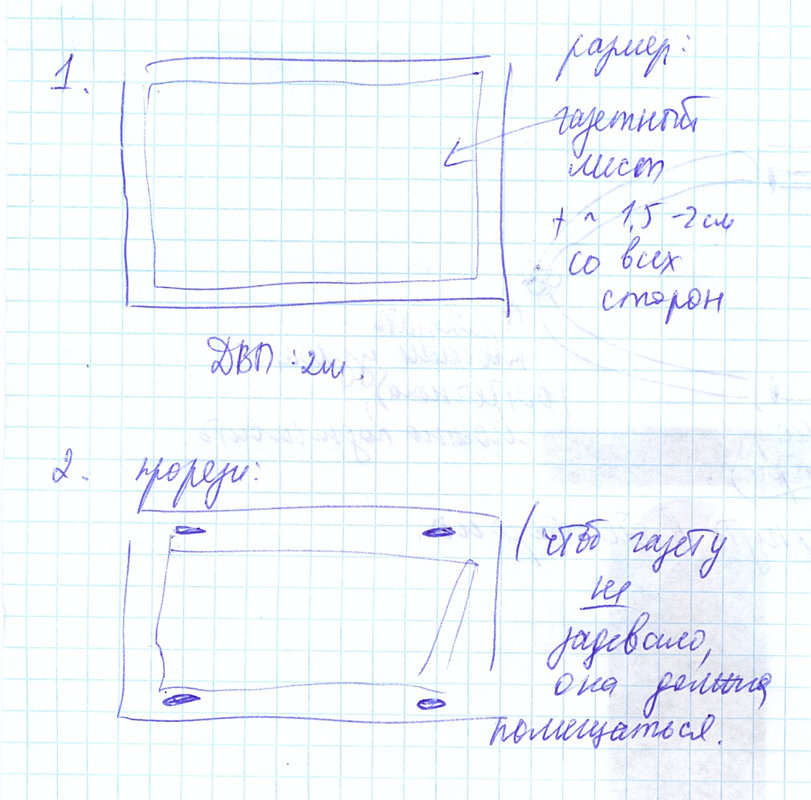 1.
размер:
газетный
лист
+ ~ 1,5-2см
со всех
сторон
ДВП : 2м.
2. прорези:
(чтоб газету
не
задевало,
она должна
помещаться.